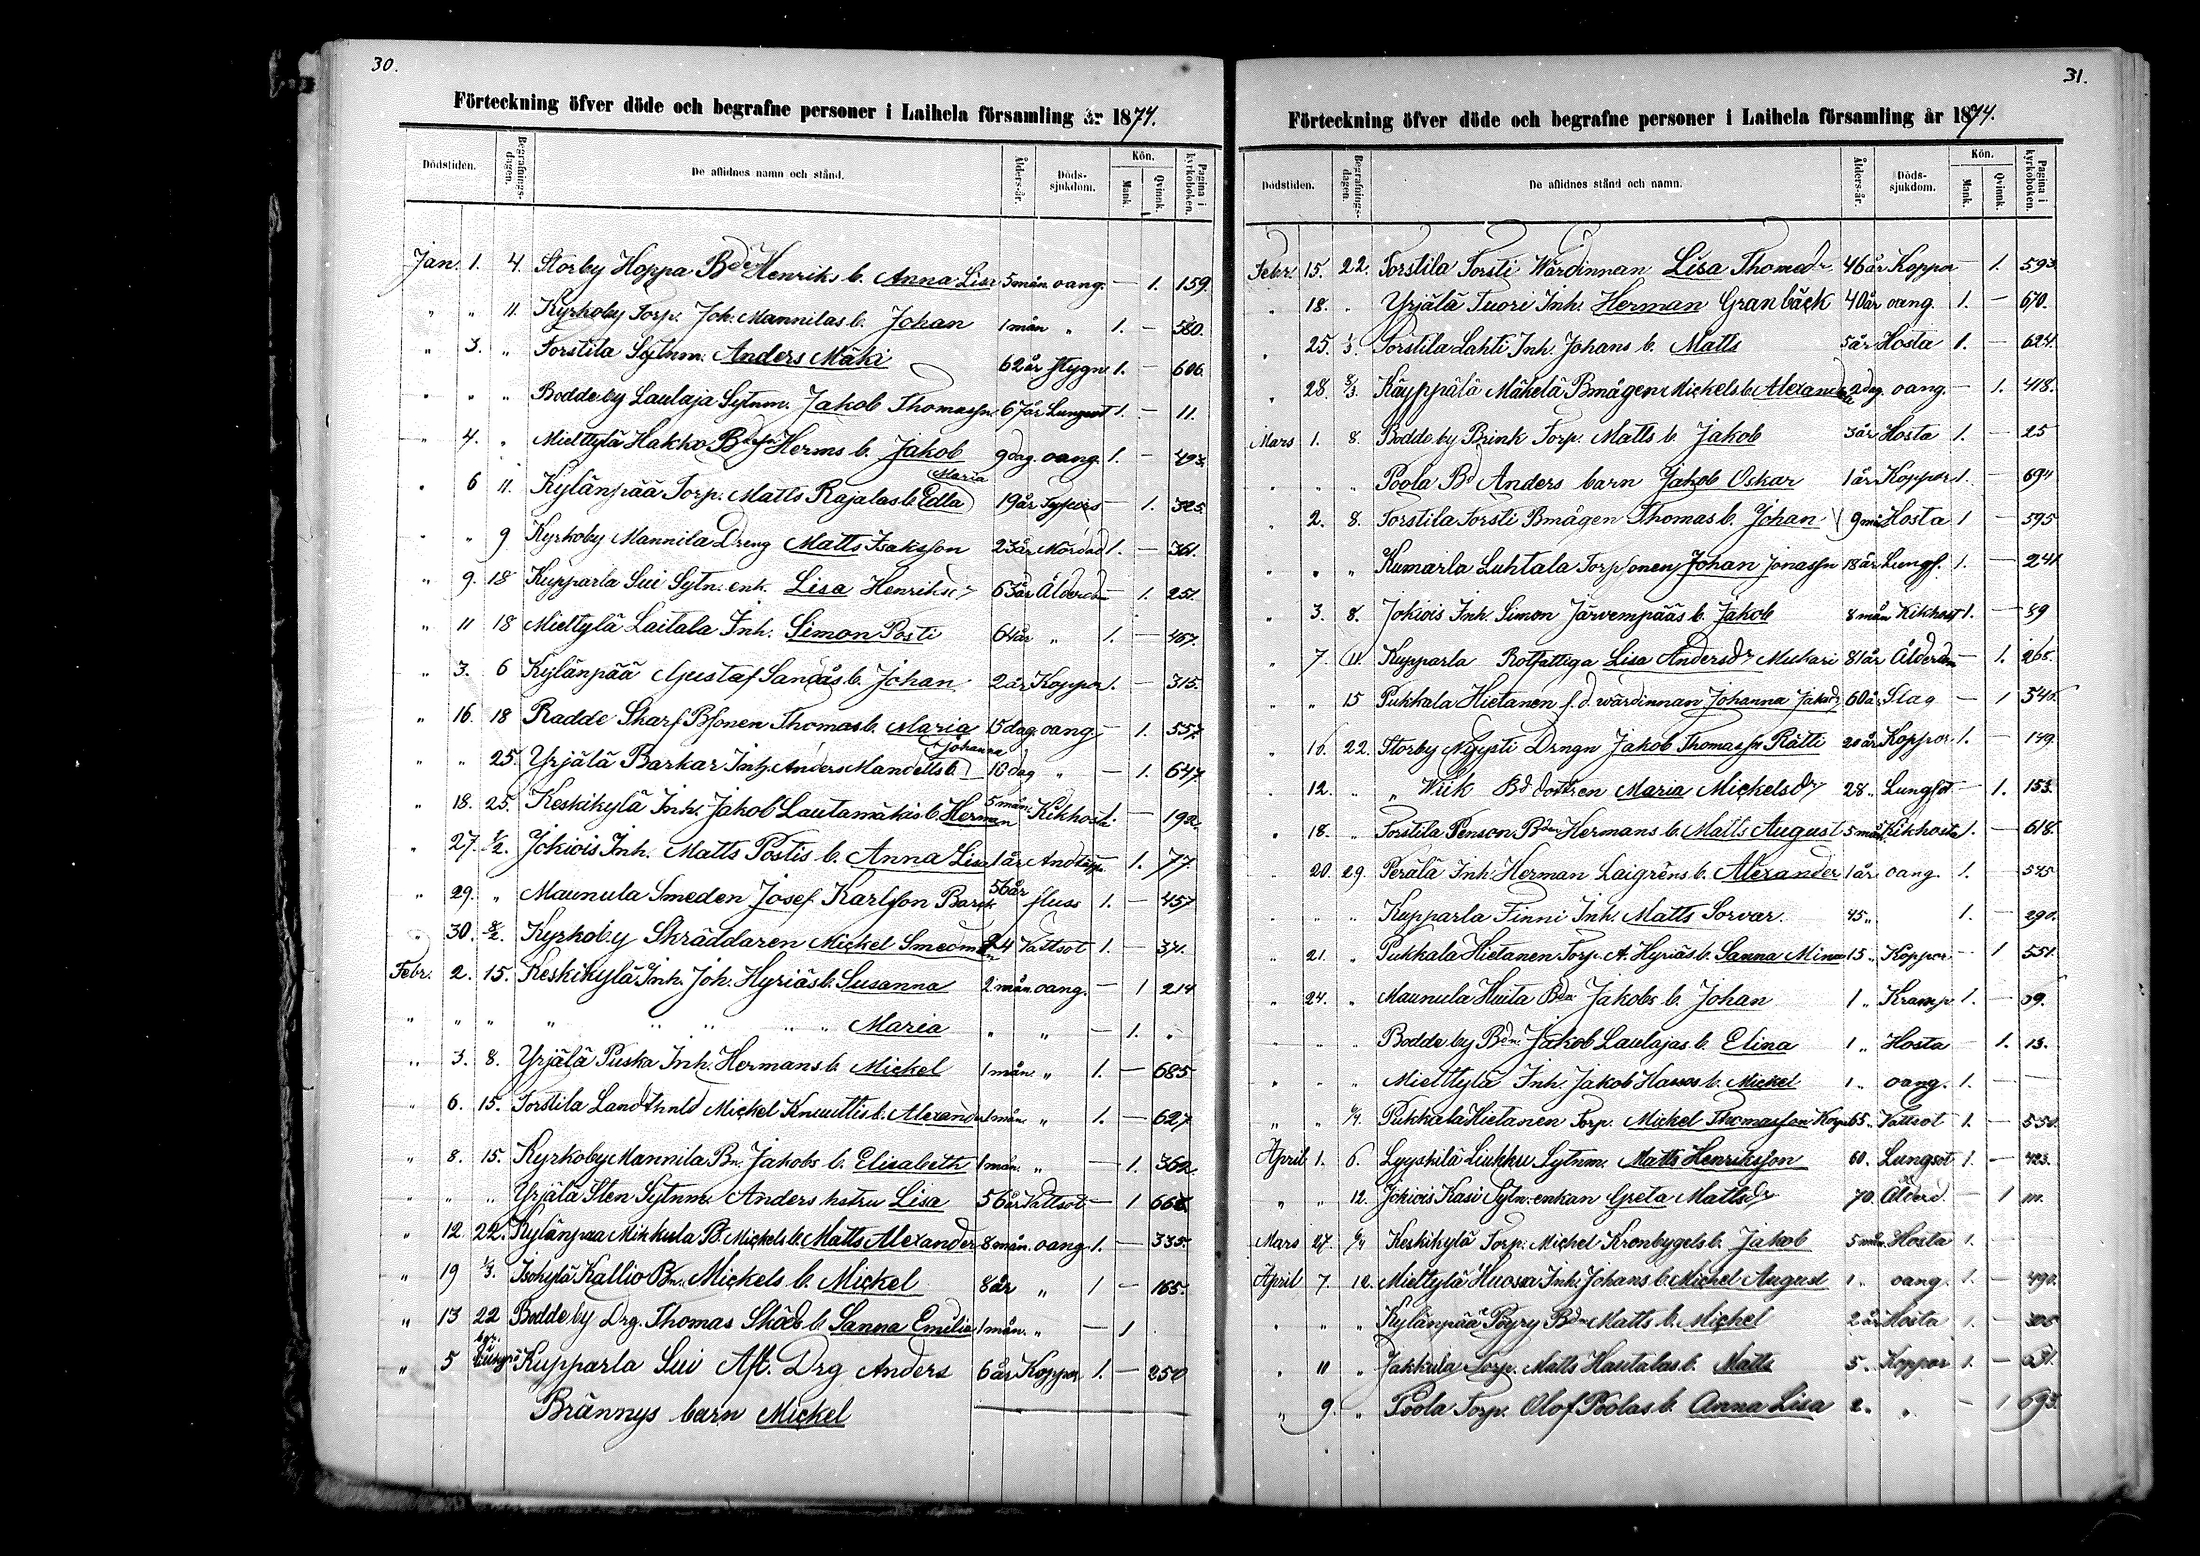 30.
Förteckning öfver döde och begrafne personer i Laihela församling år 1874.
Dödstiden. Begrafningsdagen. De aflidnes namn och stånd. Ålders-år. Döds-sjukdom. Kön. Mank. Qvink. Pagina i kyrkoboken.
Jan. 1. 4. Storby Hoppa Henriks b. Anna Lisa 5 mån. oang. — 1. 159.
" " 11. Kyrkoby Torp. Joh. Mannilas b. Johan 1 mån " 1. — 580.
" 3. " Torstila Sytnm. Anders Mäki 62 år Hygn 1. — 606.
" " " Boddeby Laulaja Sytnm. Jakob Thomassn 67 år Lungsot 1. — 11.
" 4. " Miettylä Hakko Herms b. Jakob 9 dag. oang. 1. — 493.
" 6 11. Kylänpää Torp. Matts Rajalas b. Edla Maria 19 år — 1. 325.
" " 9 Kyrkoby Mannila Dreng Matts Isaksson 23 år Mördad 1. — 361.
" 9. 18 Kupparla Sui Sytn. enk. Lisa Henriksdr 63 år Ålderdom — 1. 251.
" 11 18 Miettylä Laitala Inh. Simon Posti 64 år " 1. — 467.
" 3. 6 Kylänpää Gustaf Sandås b. Johan 2 år Koppor 1. — 315.
" 16. 18 Radde Skarf Bsonen Thomas b. Maria 15 dag oang. — 1. 557.
" " 25. Yrjälä Barkar Inh. Anders Mandells b. Johanna 10 dag " — 1. 647
" 18. 25. Keskikylä Inh. Jakob Lautamäkis b. Herman 5 mån. Kikhosta 1. 192.
" 27. 1/2. Jokiois Inh. Matts Postis b. Anna Lisa 1 år — 1. 77.
" 29. " Maunula Smeden Josef Karlsson 56 år fluss 1. — 457
" 30. 8/2. Kyrkoby Skräddaren Mickel Vattsot 1. — 371.
Febr. 2. 15. Keskikylä Inh. Joh. Hyriäs b. Susanna 2 mån. oang. — 1 214
" " " " " " " " Maria " " — 1. "
" 3. 8. Yrjälä Puska Inh. Hermans b. Mickel 1 mån. " 1. — 685
" 6. 15. Torstila Mickel Knuuttis b. Alexander 1 mån. " 1. — 627
" 8. 15. Kyrkoby Mannila Bn. Jakobs b. Elisabeth 1 mån. " — 1. 362.
" " " Yrjälä Sten Sytnm. Anders hstru Lisa 56 år Vattsot — 1
" 12. 22. Kylänpää Mikkula B. Mickels b. Matts Alexander 8 mån. oang. 1. — 335.
" 19 1/3. Isokylä Kallio Bn. Mickels b. Mickel 8 år " 1 — 165.
" 13 22 Boddeby Drg. Thomas b. Sanna Emilia 1 mån. " — 1
" 5 Kupparla Sui Afl. Drg Anders 6 år Koppor 1. — 250
Brännys barn Mickel
31.
Förteckning öfver döde och begrafne personer i Laihela församling år 1874.
Dödstiden. Begrafningsdagen. De aflidnes stånd och namn. Ålders-år. Döds-sjukdom. Kön. Mank. Qvink. Pagina i kyrkoboken.
Febr. 15. 22. Torstila Torsti Wärdinnan Lisa Thomedr 46 år Koppor — 1. 593.
" 18. " Yrjälä Tuori Inh. Herman Granbäck 40 år oang. 1. — 670.
" 25. 1/3. Torstila Lahti Inh. Johans b. Matts 5 år Hosta 1. — 624.
" 28. 8/3. Käyppälä Mäkelä Bmågen Mickels b. Alexandra 2 dag. oang. — 1. 418.
Mars 1. 8. Boddeby Brink Torp. Matts b. Jakob 3 år Hosta 1. — 25
" " " Poola Bd Anders barn Jakob Oskar 1 år Koppor 1. — 694
" 2. 8. Torstila Torsti Bmågen Thomas b. Johan 9 mån Hosta 1 — 595
" " " Kumarla Luhtala Torpsonen Johan Jonassn 18 år Lungs. 1. — 241
" 3. 8. Jokiois Inh. Simon Järvempääs b. Jakob 8 mån Kikhost 1. — 89
" 7. 11. Kupparla Rotfattiga Lisa Andersdr 81 år Ålderdom — 1. 268.
" " 15 Pukkala Hietanen f. d. wärdinnan Johanna Jakobsdr 60 år Slag — 1 540.
" 10. 22. Storby Drngn Jakob Thomassn Rätti 20 år Koppor 1. — 149.
" 12. " " Wiik Bd dottren Maria Mickelsdr 28 " Lungsot — 1. 153.
" 18. " Torstila Penson Bdn Hermans b. Matts August 5 mån. Kikhosta 1. — 618.
" 20. 29. Perälä Inh Herman Laigréns b. Alexander 1 år oang. 1. — 545
" " " Kupparla Finni Inh. Matts Sorvar. 45 " 1. — 290.
" 21. " Pukkala Hietanen Torp. A. Hyriäs b. Sanna Mina 15 " Koppor — 1 551.
" 24. " Maunula Huita Bdn Jakobs b. Johan 1 " Kramp. 1. — 39.
" " " Boddeby Bdn. Jakob Laulajas b. Elina 1 " Hosta — 1. 13.
" " " Miettylä Inh. Jakob b. Mickel 1 " oang. 1. — —
" " 6/4. Pukkala Hietanen Torp. Mickel Thomasson 65 " Vattsot 1. — 550.
April 1. 6. Lyyskilä Liukku Sytnm. Matts Henriksson 60. Lungsot 1. — 423.
" " 12. Jokiois Kasi Sytn. enkan Greta Mattsdr 70. Ålderd. — 1 111.
Mars 27. 6/4 Keskikylä Torp. Mickel Kronbygels b. Jakob 5 mån. Hosta 1. —
April 7. 12. Miettylä Inh. Johans b. Mickel August 1 " oang. 1. — 490.
" " " Kylänpää Pöyry Bdn Matts b. Mickel 2 år Hosta 1. — 305
" 11 " Jakkula Torp. Matts Hautalas b. Matts 5 " Koppor 1. — 631.
" 9. " Poola Torp. Olof Poolas b. Anna Lisa 2 " " — 1 693.